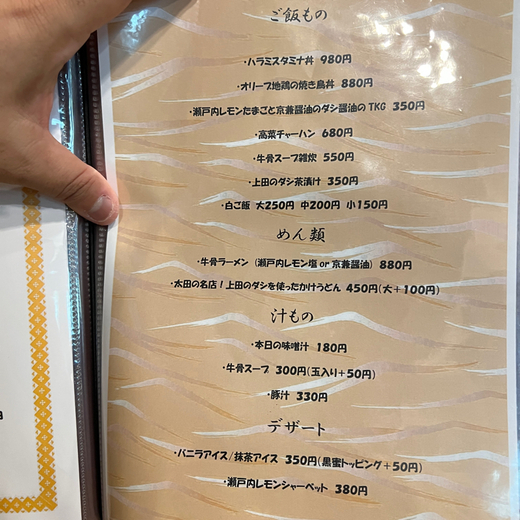 ご飯もの
・ハラミスタミナ丼 980円
・オリーブ地鶏の焼き鳥丼 880円
・瀬戸内レモンたまごと京兼醤油のダシ醤油のTKG 350円
・高菜チャーハン 680円
・牛骨スープ雑炊 550円
・上田のダシ茶漬け 350円
・白ご飯 大250円 中200円 小150円
めん類
・牛骨ラーメン (瀬戸内レモン塩 or 京兼醤油) 880円
・太田の名店!上田のダシを使ったかけうどん 450円(大+100円)
汁もの
・本日の味噌汁 180円
・牛骨スープ 300円(玉入り+50円)
・豚汁 330円
デザート
・バニラアイス/抹茶アイス 350円(黒蜜トッピング+50円)
・瀬戸内レモンシャーベット 380円
円